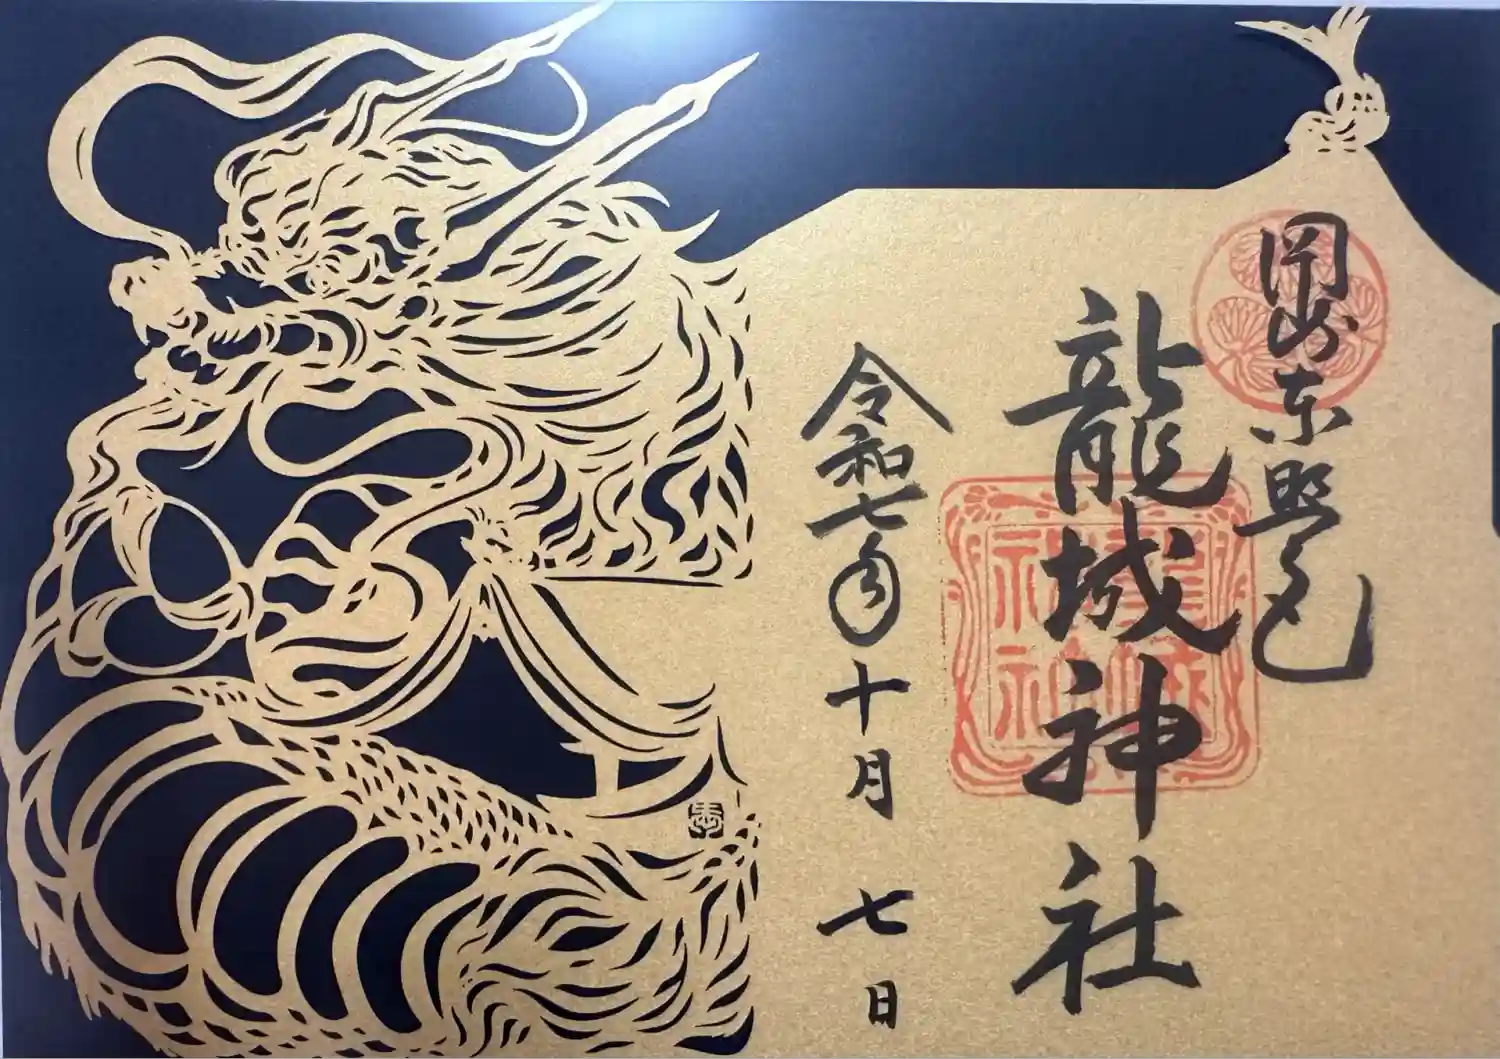 岡崎東照宮
龍城神社
龍城神社
令和七年十月七日